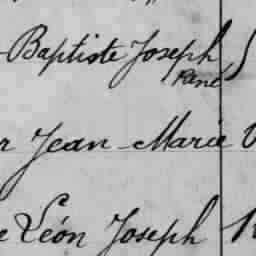 Baptiste Joseph
René
Jean-Marie
Léon Joseph